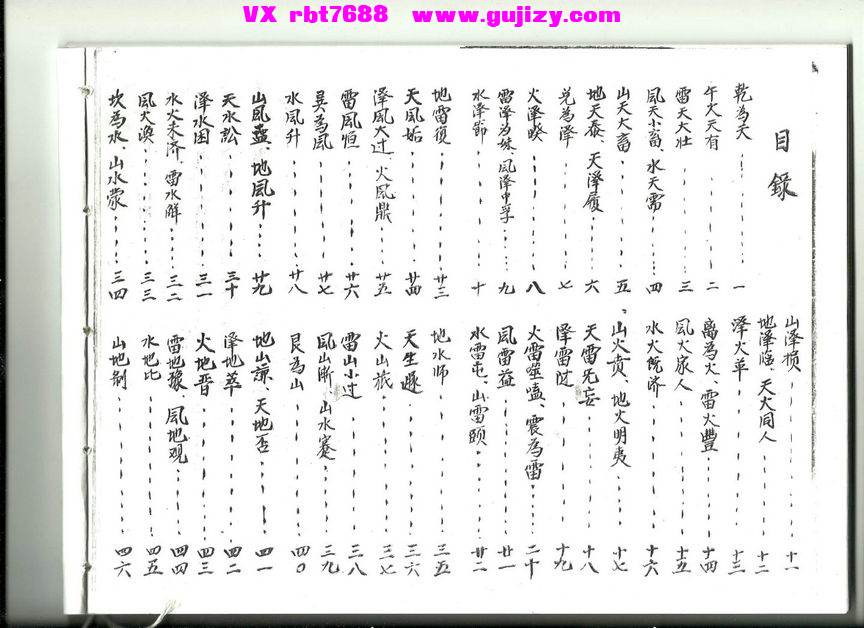 VX rbt7688 www.gujizy.com
目錄
乾為天 一
午火天有 二
雷天大壮 三
風天小畜、水天需 四
山天大畜 五
地天泰、天泽履 六
兑為泽 七
火泽睽 八
雷泽为妹、風泽中孚 九
水泽節 十
山泽损 十一
地泽临、天火同人 十二
泽火革 十三
離為火、雷火豐 十四
風火家人 十五
水火既济 十六
山火贲、地火明夷 十七
天雷无妄 十八
泽雷随 十九
火雷噬嗑、震為雷 二十
風雷益 廿一
水雷屯、山雷颐 廿二
地雷復 廿三
天風姤 廿四
泽風大过、火風鼎 廿五
雷風恒 廿六
巽為風 廿七
水風升 廿八
山風蠱、地風升 廿九
天水訟 三十
泽水困 三一
水火未济、雷水解 三二
風火涣 三三
坎為水、山水蒙 三四
地水师 三五
天生遯 三六
火山旅 三七
雷山小过 三八
風山渐、山水蹇 三九
艮為山 四〇
地山謙、天地否 四一
泽地萃 四二
火地晋 四三
雷地豫、風地观 四四
水地比 四五
山地剥 四六